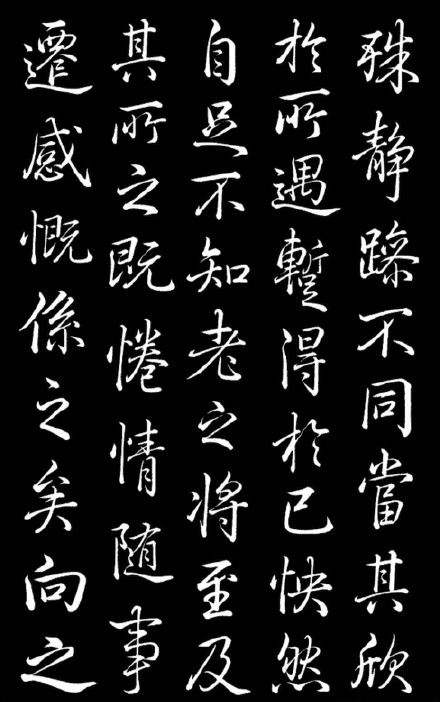 殊静躁不同當其欣
於所遇蹔得於己怏然
自足不知老之将至及
其所之既惓情随事
遷感慨係之矣向之